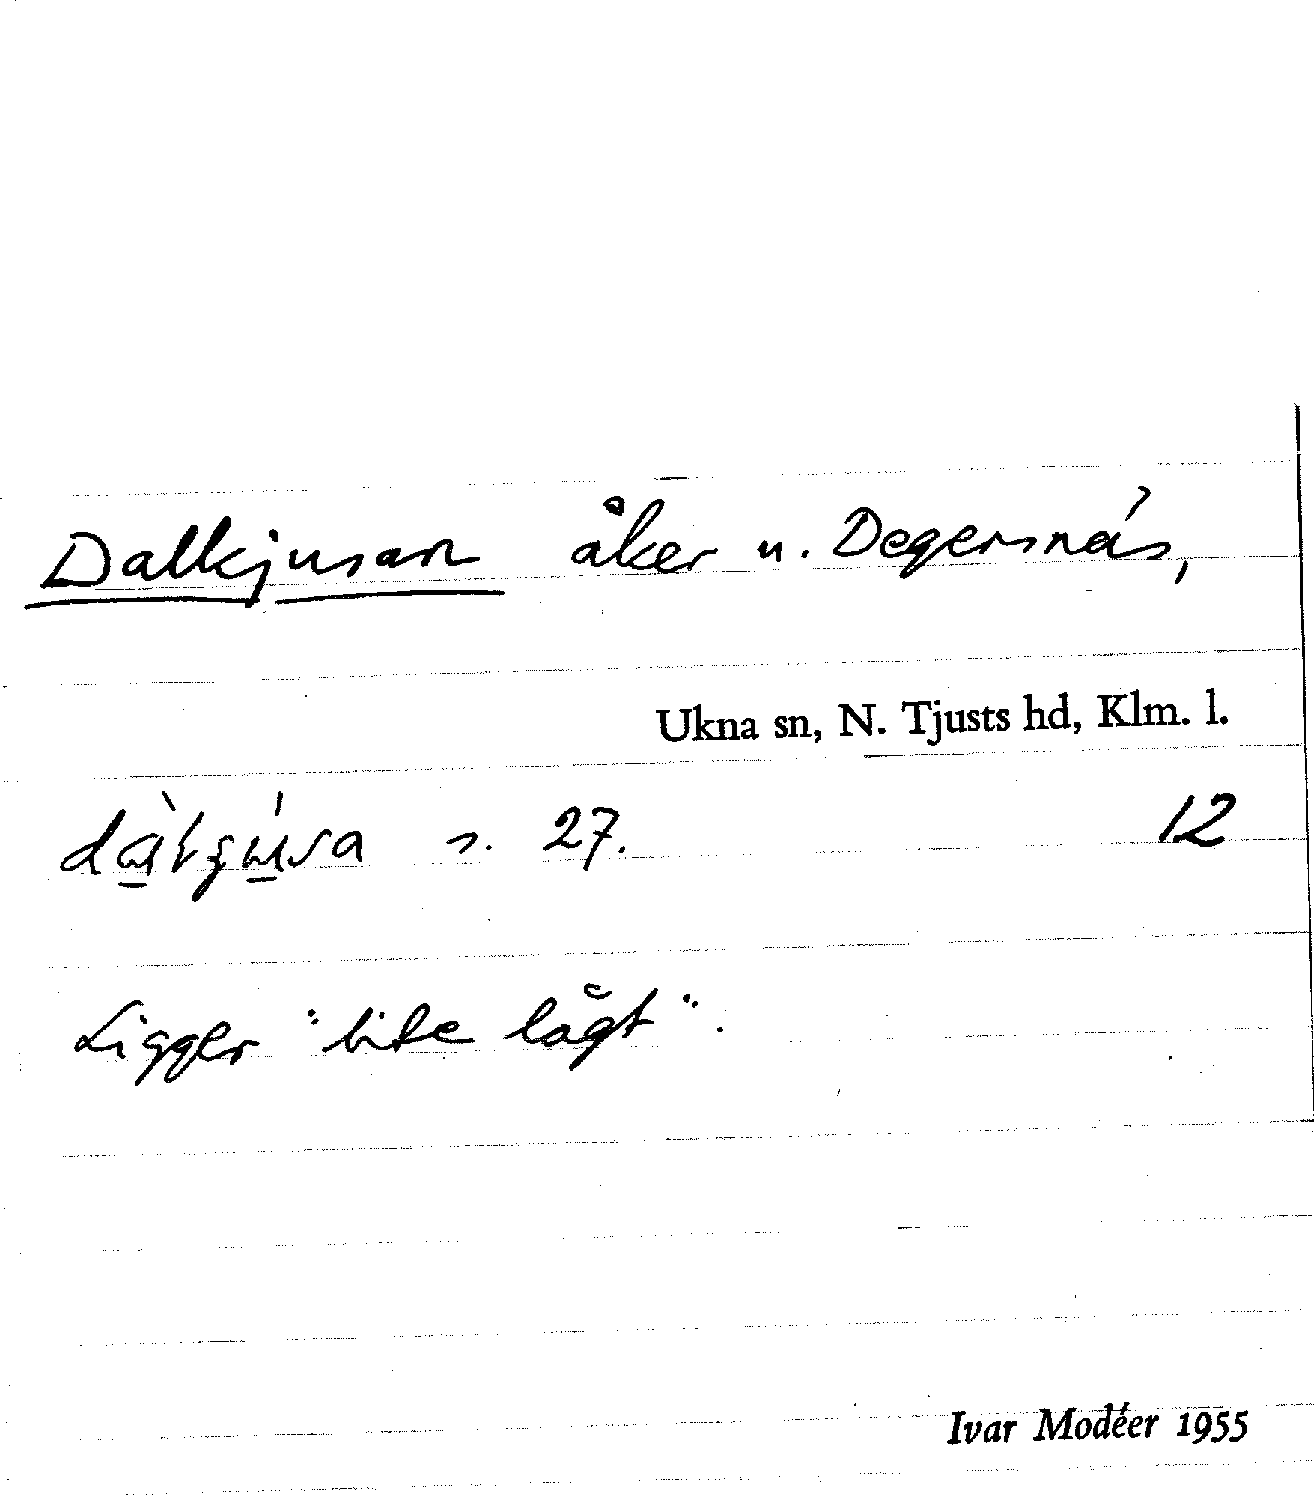 Dalkjusan åker u. Degersnäs,
Ukna sn, N. Tjusts hd, Klm. l.
s. 27. 12
Ligger "lite lågt".
Ivar Modéer 1955